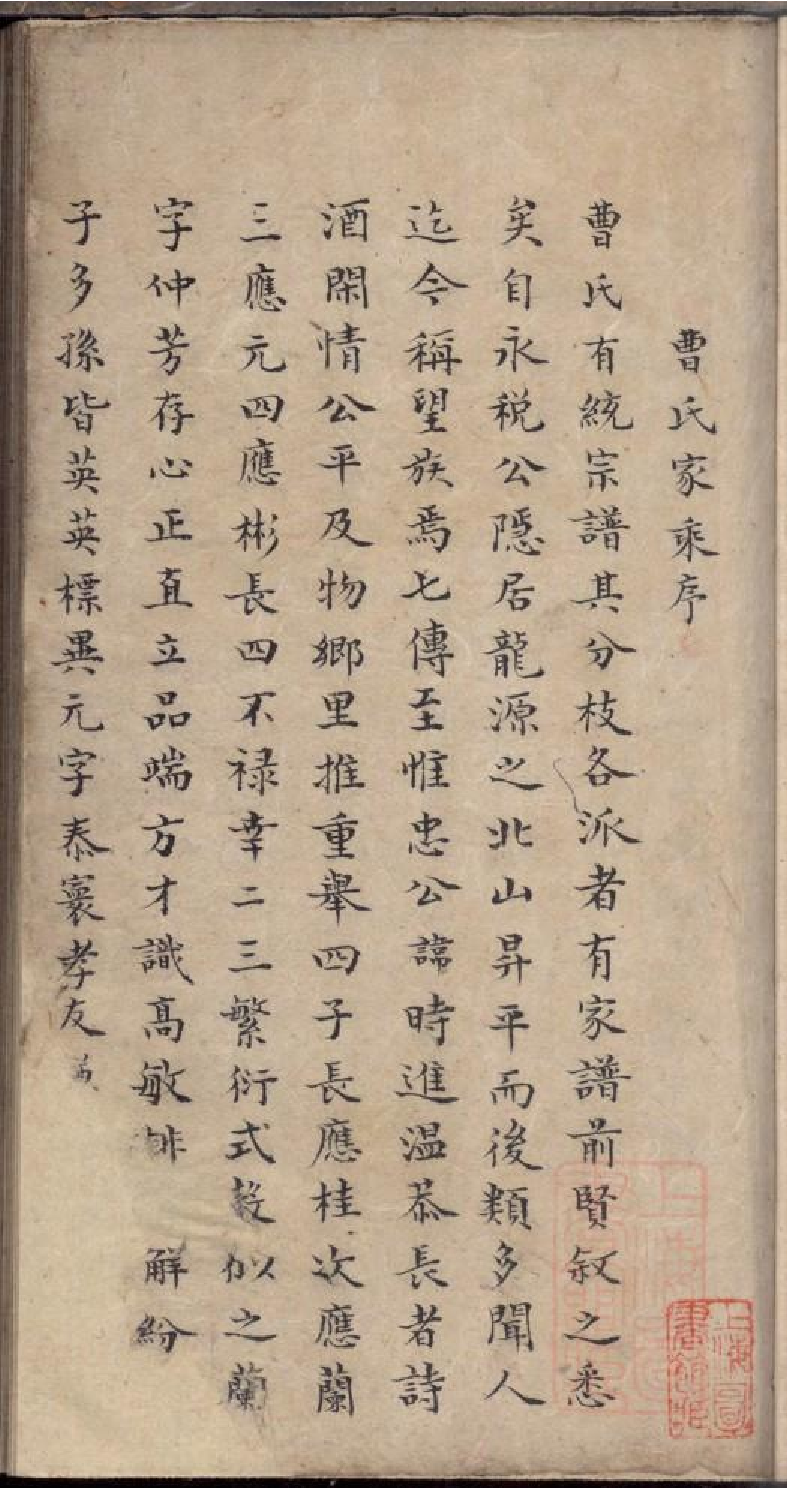 曹氏家乘序
曹氏有統宗譜其分枝各派者有家譜前賢叙之悉
矣自永税公隱居龍源之北山昇平而後類多聞人
迄今稱望族焉七傳至惟忠公諱時進温恭長者詩
酒閑情公平及物鄉里推重舉四子長應桂次應蘭
三應元四應彬長四不禄幸二三繁衍式榖似之蘭
字仲芳存心正直立品端方才識髙敏排 解紛
子多孫皆英英標異元字泰寰孝友
上海圖書館藏